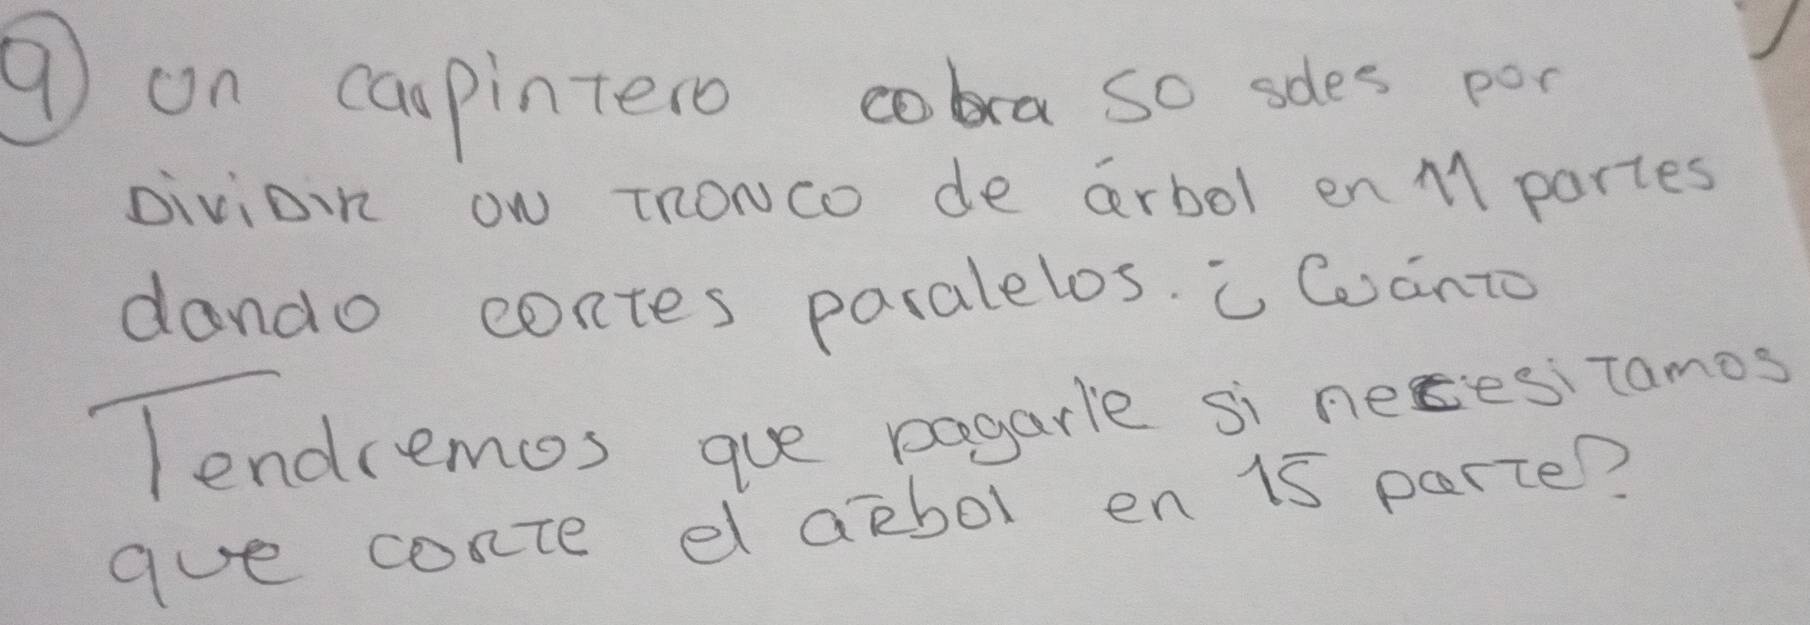 9 un carpintero cobra 50 soles por
DiviDiR un TRONCO de árbol en 11 partes
dando cortes paralelos. ¿ Cuánto
Tendremos que pagarle si necesitamos
que corte el árbol en 15 parte?